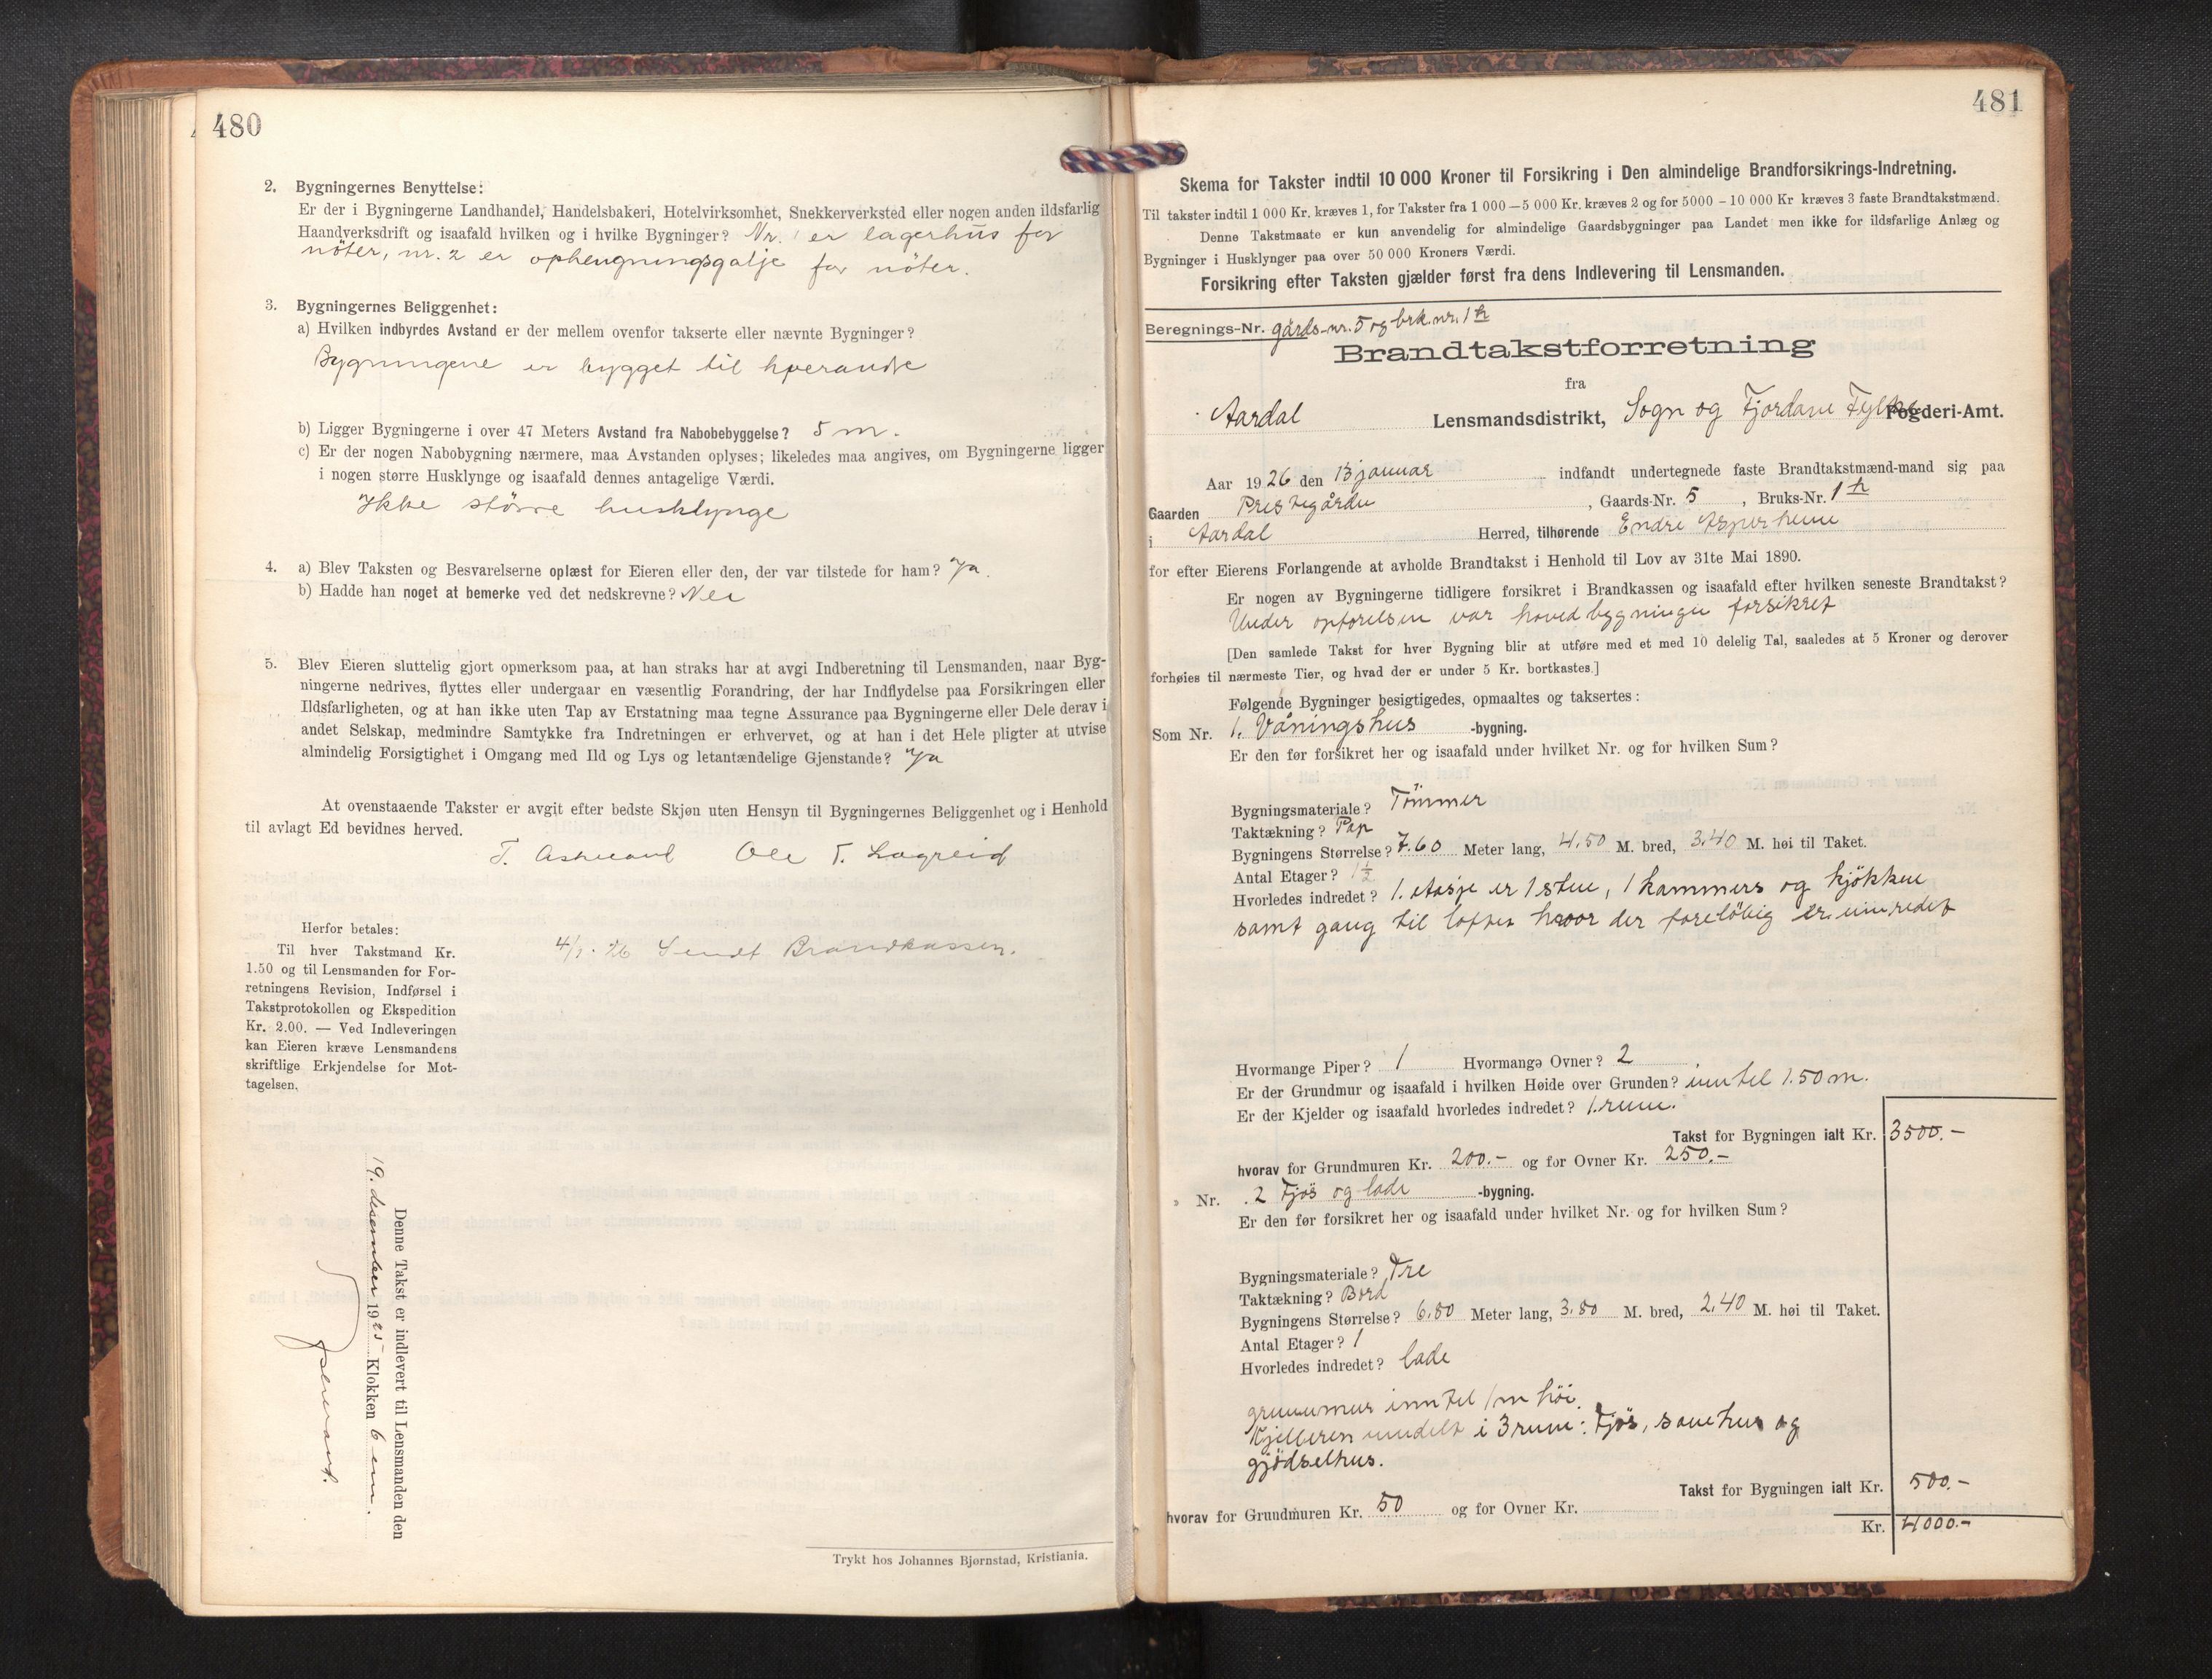 480
2. Bygningernes Benyttelse:
Er der i Bygningerne Landhandel, Handelsbakeri, Hotelvirksomhet, Snekkerverksted eller nogen anden ildsfarlig
Haandverksdrift og isaafald hvilken og i hvilke Bygninger? Nr. 1 er lagerhus for
nöter, nr. 2 er ophengningsgalje for nöter.
3. Bygningernes Beliggenhet:
a) Hvilken indbyrdes Avstand er der mellem ovenfor takserte eller nævnte Bygninger?
Bygningene er bygget til hverandre
b) Ligger Bygningerne i over 47 Meters Avstand fra Nabobebyggelse? 5 m.
c) Er der nogen Nabobygning nærmere, maa Avstanden oplyses; likeledes maa angives, om Bygningerne ligger
i nogen større Husklynge og isaafald dennes antagelige Værdi.
Ikke större husklynge
4. a) Blev Taksten og Besvarelserne oplæst for Eieren eller den, der var tilstede for ham? Ja.
b) Hadde han noget at bemerke ved det nedskrevne? Nei
5. Blev Eieren sluttelig gjort opmerksom paa, at han straks har at avgi Indberetning til Lensmanden, naar Byg-
ningerne nedrives, flyttes eller undergaar en væsentlig Forandring, der har Indflydelse paa Forsikringen eller
Ildsfarligheten, og at han ikke uten Tap av Erstatning maa tegne Assurance paa Bygningerne eller Dele derav i
andet Selskap, medmindre Samtykke fra Indretningen er erhvervet, og at han i det Hele pligter at utvise
almindelig Forsigtighet i Omgang med Ild og Lys og letantændelige Gjenstande? Ja
At ovenstaaende Takster er avgit efter bedste Skjøn uten Hensyn til Bygningernes Beliggenhet og i Henhold
til avlagt Ed bevidnes herved.
T. Ole T. Lægreid
Herfor betales:
Til hver Takstmand Kr.
1.50 og til Lensmanden for For-
retningens Revision, Indførsel i
Takstprotokollen og Ekspedition
Kr. 2.00. — Ved Indleveringen
kan Eieren kræve Lensmandens
skriftlige Erkjendelse for Mot-
tagelsen.
4/1-26 Sendt Brandkassen.
Denne Takst er indlevert til Lensmanden den
19. desember 1925 Klokken 6 em.
Trykt hos Johannes Bjørnstad, Kristiania.
481
Skema for Takster indtil 10 000 Kroner til Forsikring i Den almindelige Brandforsikrings-Indretning.
Til takster indtil 1 000 Kr. kræves 1, for Takster fra 1 000—5 000 Kr. kræves 2 og for 5000 - 10 000 Kr kræves 3 faste Brandtakstmænd.
Denne Takstmaate er kun anvendelig for almindelige Gaardsbygninger paa Landet men ikke for ildsfarlige Anlæg og
Bygninger i Husklynger paa over 50 000 Kroners Værdi.
Forsikring efter Taksten gjælder først fra dens Indlevering til Lensmanden.
Beregnings-Nr. gårds-nr. 5 og brk.nr. 1
Brandtakstforretning
fra
Aardal Lensmandsdistrikt, Sogn og Fjordane Fylke Fogderi-Amt.
Aar 1926 den 13 januar indfandt undertegnede faste Brandtakstmænd-mand sig paa
Gaarden Prestegården, Gaards-Nr. 5, Bruks-Nr. 1
i Aardal Herred, tilhørende Endre Asperheim
for efter Eierens Forlangende at avholde Brandtakst i Henhold til Lov av 31te Mai 1890.
Er nogen av Bygningerne tidligere forsikret i Brandkassen og isaafald efter hvilken seneste Brandtakst?
Under opförelsen var hovedbygningen forsikret
[Den samlede Takst for hver Bygning blir at utføre med et med 10 delelig Tal, saaledes at 5 Kroner og derover
forhøies til nærmeste Tier, og hvad der er under 5 Kr. bortkastes.]
Følgende Bygninger besigtigedes, opmaaltes og taksertes:
Som Nr. 1. Våningshus -bygning.
Er den før forsikret her og isaafald under hvilket Nr. og for hvilken Sum?
Bygningsmateriale? Tömmer
Taktækning? Pap
Bygningens Størrelse? 7.60 Meter lang, 4.50 M. bred, 3.40 M. høi til Taket.
Antal Etager? 1½
Hvorledes indredet? 1. etasje er 1 stue, 1 kammers og kjökken
samt gang til loftet hvor der foreløbig er uinnredet
Hvormange Piper? 1 Hvormange Ovner? 2
Er der Grundmur og isaafald i hvilken Høide over Grunden? inntil 1.50 m.
Er der Kjelder og isaafald hvorledes indredet? 1. rum.
Takst for Bygningen ialt Kr. 3500.-
hvorav for Grundmuren Kr. 200.- og for Ovner Kr. 250.-
» Nr. 2 Fjös og lade -bygning.
Er den før forsikret her og isaafald under hvilket Nr. og for hvilken Sum?
Bygningsmateriale? Tre
Taktækning? Bord
Bygningens Størrelse? 6.80 Meter lang, 3.80 M. bred, 2.40 M. høi til Taket.
Antal Etager? 1
Hvorledes indredet? lade
grunnmur inntil 1 m höi.
Kjelleren inndelt i 3 rum: Fjös, sauehus og
gjödselhus.
Takst for Bygningen ialt Kr. 500.-
hvorav for Grundmuren Kr. 50 og for Ovner Kr.
Kr. 4000.-